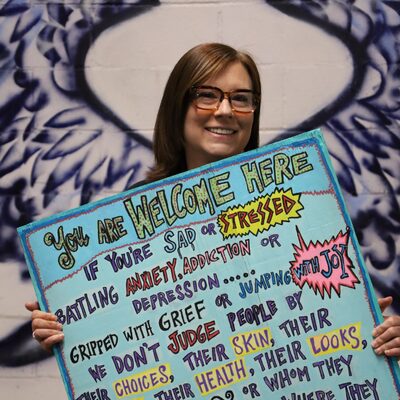 You are WELCOME HERE
IF YOU'RE SAD OR STRESSED
BATTLING ANXIETY, ADDICTION OR
DEPRESSION.....
GRIPPED WITH GRIEF OR JUMPING WITH JOY
WE DON'T JUDGE PEOPLE BY
THEIR SKIN, THEIR
CHOICES, THEIR HEALTH, THEIR LOOKS,
OR WHOM THEY
WHERE THEY